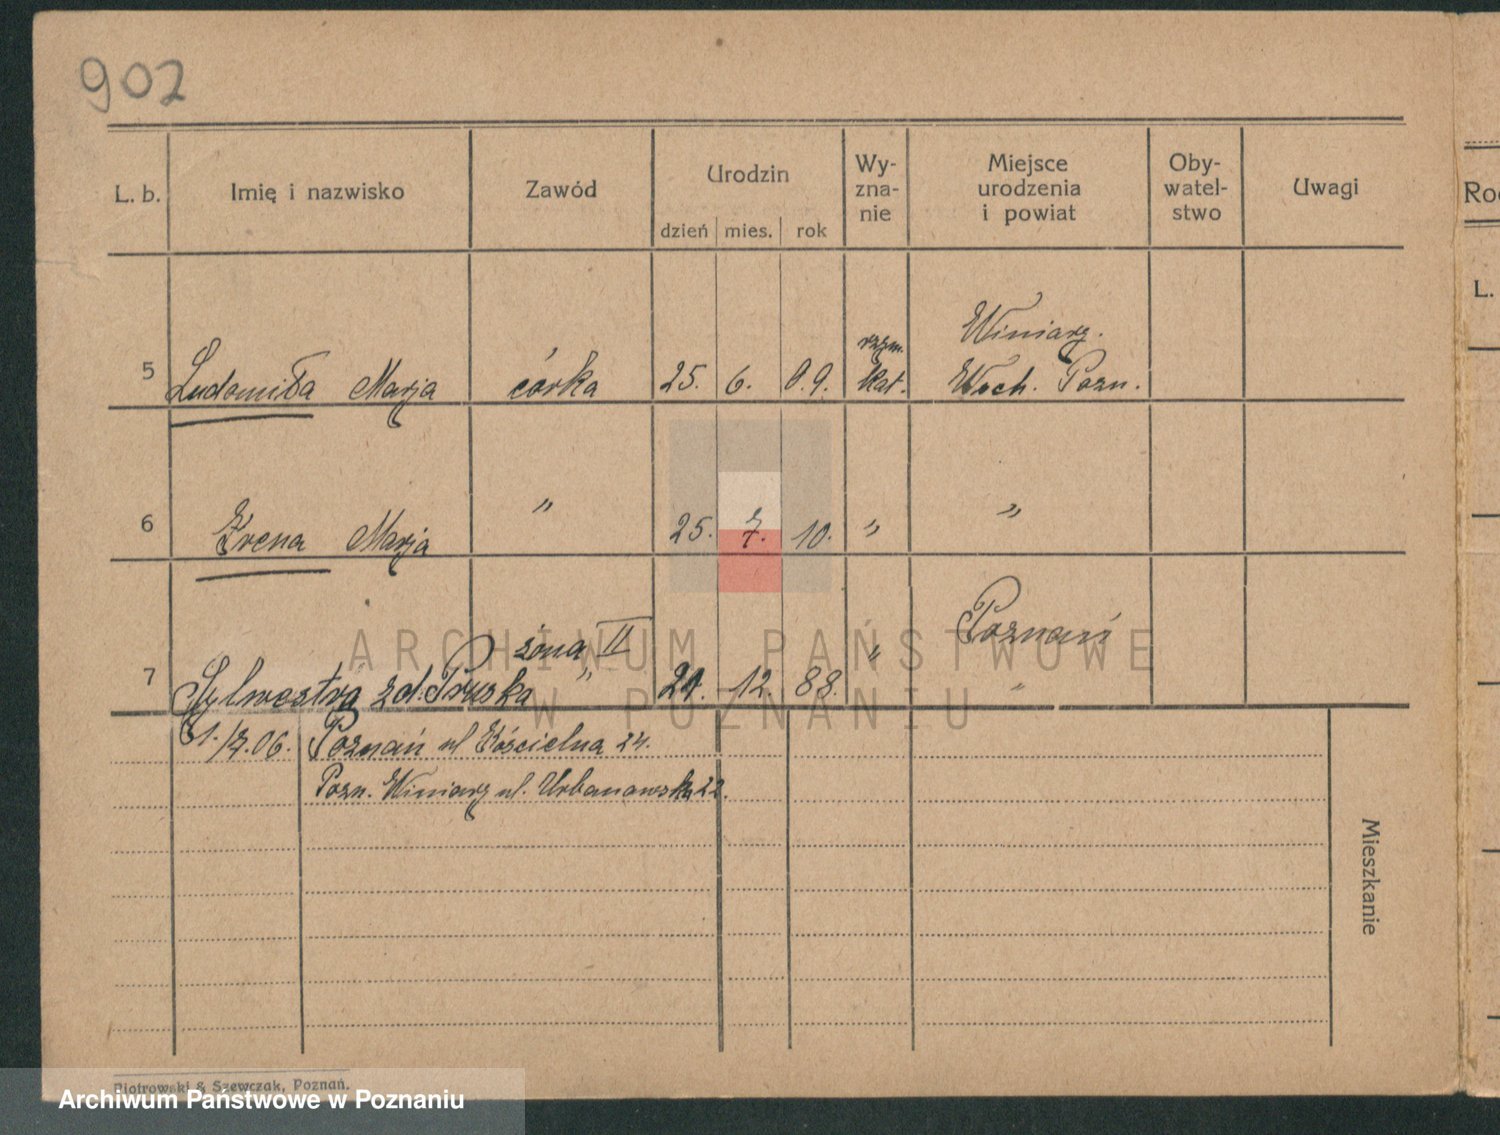 902
L. b. Imię i nazwisko Zawód Urodzin Wy- Miejsce Oby- Uwagi
zna- urodzenia watel-
nie i powiat stwo
dzień mies. rok
Winiarg.
rzym.
5 Ludomiła Marja córka 25. 6. 09. kat. Wsch. Pozn.
6 Irena Marja " 25. 7. 10. " "
żona II Poznań
7 Sylwestra zd. Pruska " 21. 12. 88. " "
1./7.06. Poznań ul Kościelna 24.
Pozn. Winiarg ul. Urbanowska 22.
Mieszkanie
Piotrowski & Szewczak, Poznań.
Roc
L.
ARCHIWUM PAŃSTWOWE
W POZNANIU
Archiwum Państwowe w Poznaniu